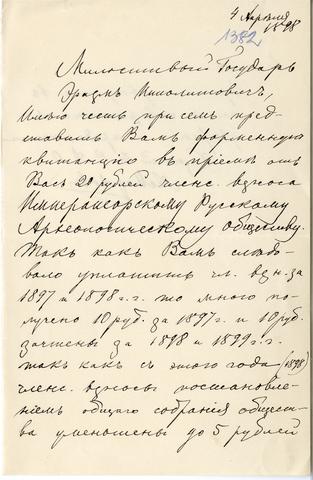 4 Апреля
1898
1382
Милостивый Государь
Эразмъ Ипполитовичъ,
Имѣю честь при семъ пред-
ставить Вамъ форменную
квитанцію въ пріемѣ отъ
Васъ 20 рублей членс. взноса
Императорскому Русскому
Археологическому обществу.
Такъ какъ Вамъ слѣдо-
вало уплатить чл. взн. за
1897 и 1898 г.г. то мною по-
лучено 10 руб. за 1897 г. и 10 руб.
зачтены за 1898 и 1899 г.г.
такъ какъ съ этого года (1898)
членс. взносы постановле-
ніемъ общаго собранія общест-
ва уменьшены до 5 рублей